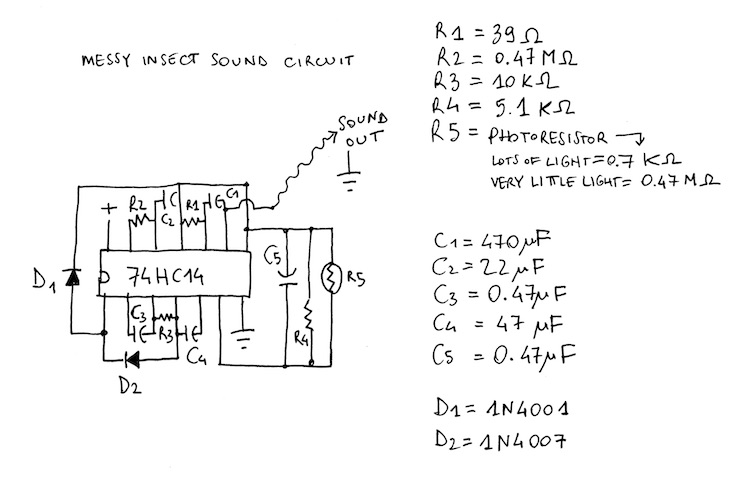 MESSY INSECT SOUND CIRCUIT
SOUND
OUT
+
R2
C
C2
R1
C1
74HC14
D1
C5
R5
C3
R3
C4
R4
D2
R1 = 39Ω
R2 = 0.47MΩ
R3 = 10KΩ
R4 = 5.1 KΩ
R5 = PHOTORESISTOR →
LOTS OF LIGHT = 0.7 KΩ
VERY LITTLE LIGHT = 0.47 MΩ
C1 = 470μF
C2 = 22μF
C3 = 0.47μF
C4 = 47 μF
C5 = 0.47μF
D1 = 1N4001
D2 = 1N4007